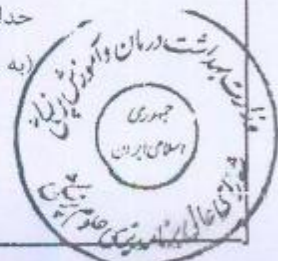 حدا
(به
وزارت بهداشت درمان و آموزش پزشکی
جمهوری
اسلامی ایران
شورای عالی برنامه ریزی علوم پزشکی